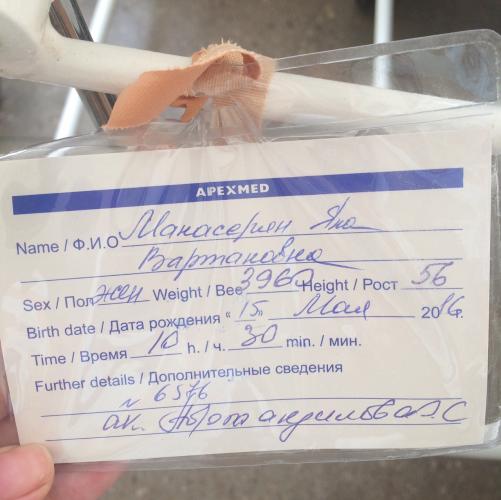 APEXMED
Name / Ф.И.О Манасерян Яна
Вартановна
Sex / Пол жен Weight / Вес 3960 Height / Рост 56
Birth date / Дата рождения « 15 » Мая 2016г.
Time / Время 10 h. / ч. 30 min. / мин.
Further details / Дополнительные сведения
№ 6576
ак.